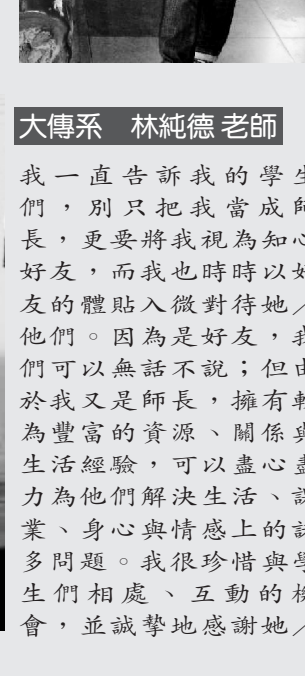 大傳系　林純德 老師
我一直告訴我的學生
們，別只把我當成師
長，更要將我視為知心
好友，而我也時時以好
友的體貼入微對待她／
他們。因為是好友，我
們可以無話不說；但由
於我又是師長，擁有較
為豐富的資源、關係與
生活經驗，可以盡心盡
力為他們解決生活、課
業、身心與情感上的諸
多問題。我很珍惜與學
生們相處、互動的機
會，並誠摯地感謝她／